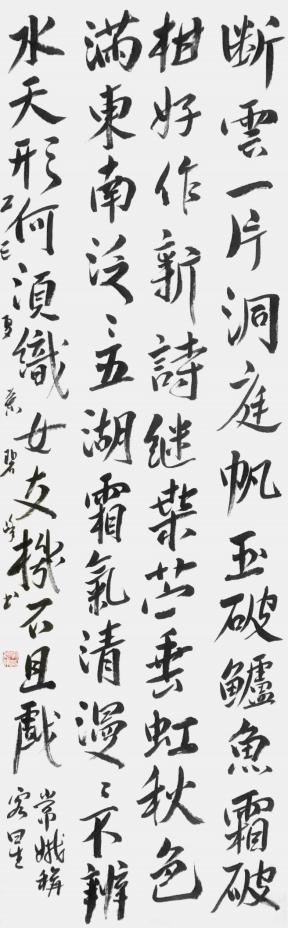 斷雲一片洞庭帆玉破鱸魚霜破
柑好作新詩继桑苧垂虹秋色
滿東南泛〻五湖霜氣清漫〻不辨
水天形何湏織女支機石且戲
常娥稱
客星
乙巳夏葉碧峰书